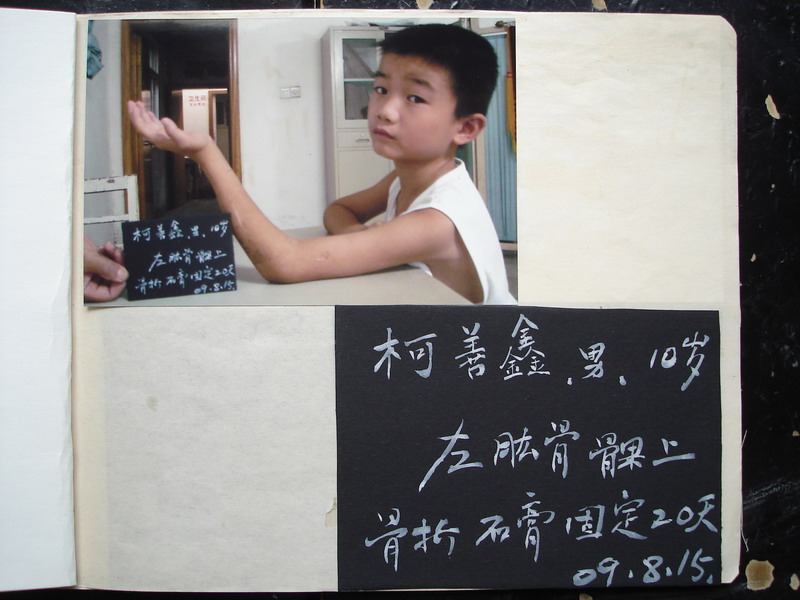 卫生间
柯善鑫.男.10岁
左肱骨髁上
骨折石膏固定20天
09.8.15.
柯善鑫.男.10岁
左肱骨髁上
骨折石膏固定20天
09.8.15.